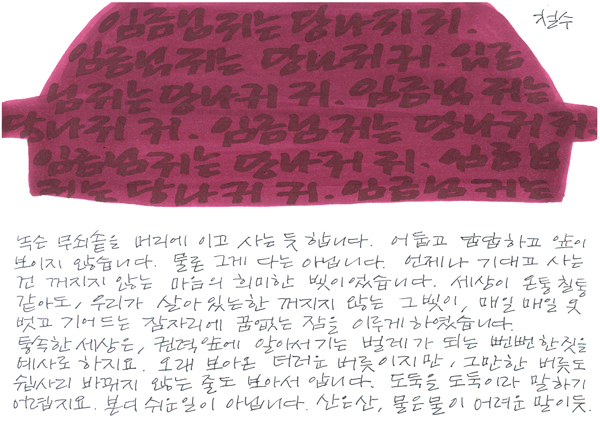 철수
임금님 귀는 당나귀 귀.
임금님 귀는 당나귀 귀. 임금
님 귀는 당나귀 귀. 임금님 귀는
당나귀 귀. 임금님 귀는 당나귀 귀.
임금님 귀는 당나귀 귀. 임금님
귀는 당나귀 귀. 임금님 귀는
녹슨 무쇠솥을 머리에 이고 사는 듯 합니다. 어둡고 답답하고 앞이
보이지 않습니다. 물론 그게 다는 아닙니다. 언제나 기대고 사는
건 꺼지지 않는 마음의 희미한 빛이었습니다. 세상이 온통 칠통
같아도, 우리가 살아 있는한 꺼지지 않는 그 빛이, 매일 매일 옷
벗고 기어드는 잠자리에 꿈없는 잠을 이루게 하였습니다.
통속한 세상은, 권력앞에 알아서 기는 벌레가 되는 뻔뻔한 짓을
예사로 하지요. 오래 보아온 더러운 버릇이지만, 그만한 버릇도
쉽사리 바뀌지 않는 줄도 보아서 압니다. 도둑을 도둑이라 말하기
어렵지요. 본디 쉬운일이 아닙니다. 산은산, 물은물이 어려운 말이듯.